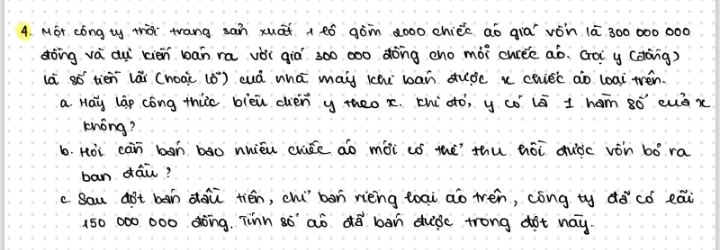 4. Một công ty thời trang sản xuất 1 lô gồm 2000 chiếc áo giá vốn là 300 000 000
đồng và dự kiến bán ra với giá 300 000 đồng cho mỗi chiếc áo. Gọi y (đồng)
là số tiền lãi (hoặc lỗ) của nhà máy khi bán được x chiếc áo loại trên.
a. Hãy lập công thức biểu diễn y theo x. Khi đó, y có là 1 hàm số của x
không?
b. Hỏi cần bán bao nhiêu chiếc áo mới có thể thu hồi được vốn bỏ ra
ban đầu?
c. Sau đợt bán đầu tiên, chỉ bán riêng loại áo trên, công ty đã có lãi
150 000 000 đồng. Tính số áo đã bán được trong đợt này.